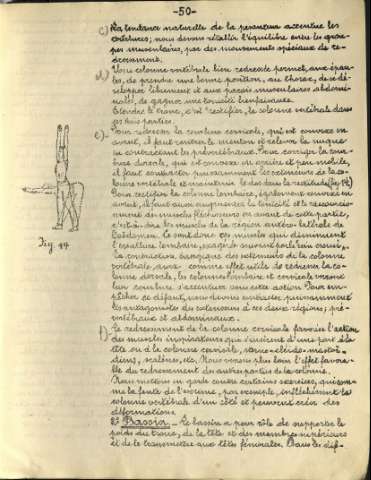 -50-
c) La tendance naturelle de la pesanteur accentue les
courbures; nous devons rétablir l'équilibre entre les grou-
pes musculaires, par des mouvements spéciaux de re-
dressement.
d) Une colonne vertébrale bien redressée permet, aux épau-
les, de prendre une bonne position, au thorax, de se dé-
velopper librement et aux parois musculaires abdomi-
nales, de gagner une tonicité bienfaisante.
Etendre le tronc, c'est rectifier, la colonne vertébrale dans
ses trois parties.
e).- Pour redresser la courbure cervicale, qui est convexe en
avant, il faut rentrer le menton et relever la nuque
en contractant les prévertébraux. Pour corriger la cour-
bure dorsale, qui est convexe en arrière et peu mobile,
il faut contracter puissamment les extenseurs de la co-
lonne vertébrale et maintenir le dos dans la rectitude (fig 44)
Pour rectifier la colonne lombaire, également convexe en
avant, il faut aussi augmenter la tonicité et le raccourcis-
sement des muscles fléchisseurs en avant de cette partie,
c'est-à-dire les muscles de la région antéro-latérale de
l'abdomen. Ce sont donc ces muscles qui diminuent
l'ensellure lombaire, exagérée souvent par le
La contraction énergique des extenseurs de la colonne
vertébrale, aura comme effet utile de redresser la co-
lonne dorsale, les colonnes lombaire et cervicale verront
leur courbure s'accentuer sous cette action. Pour em-
pêcher ce défaut, nous devons contracter puissamment
les antagonistes des extenseurs à ces deux régions; pré-
vertébraux et abdominaux.
f).- Le redressement de la colonne cervicale favorise l'action
des muscles inspirateurs qui s'insèrent d'une part à la
tête ou à la colonne cervicale, sterno-cléido-mastoï-
diens, scalènes, etc. Nous verrons plus loin l'effet favora-
ble du redressement des autres parties de la colonne.
Nous mettons en garde contre certains exercices, qui com-
me la fente de l'escrime, par exemple, infléchissent la
colonne vertébrale d'un côté et peuvent créer des
déformations.
2º Bassin.- Le bassin a pour rôle de supporter le
poids du tronc, de la tête et des membres supérieurs
et de le transmettre aux têtes fémorales. Dans les dif-
Fig 44